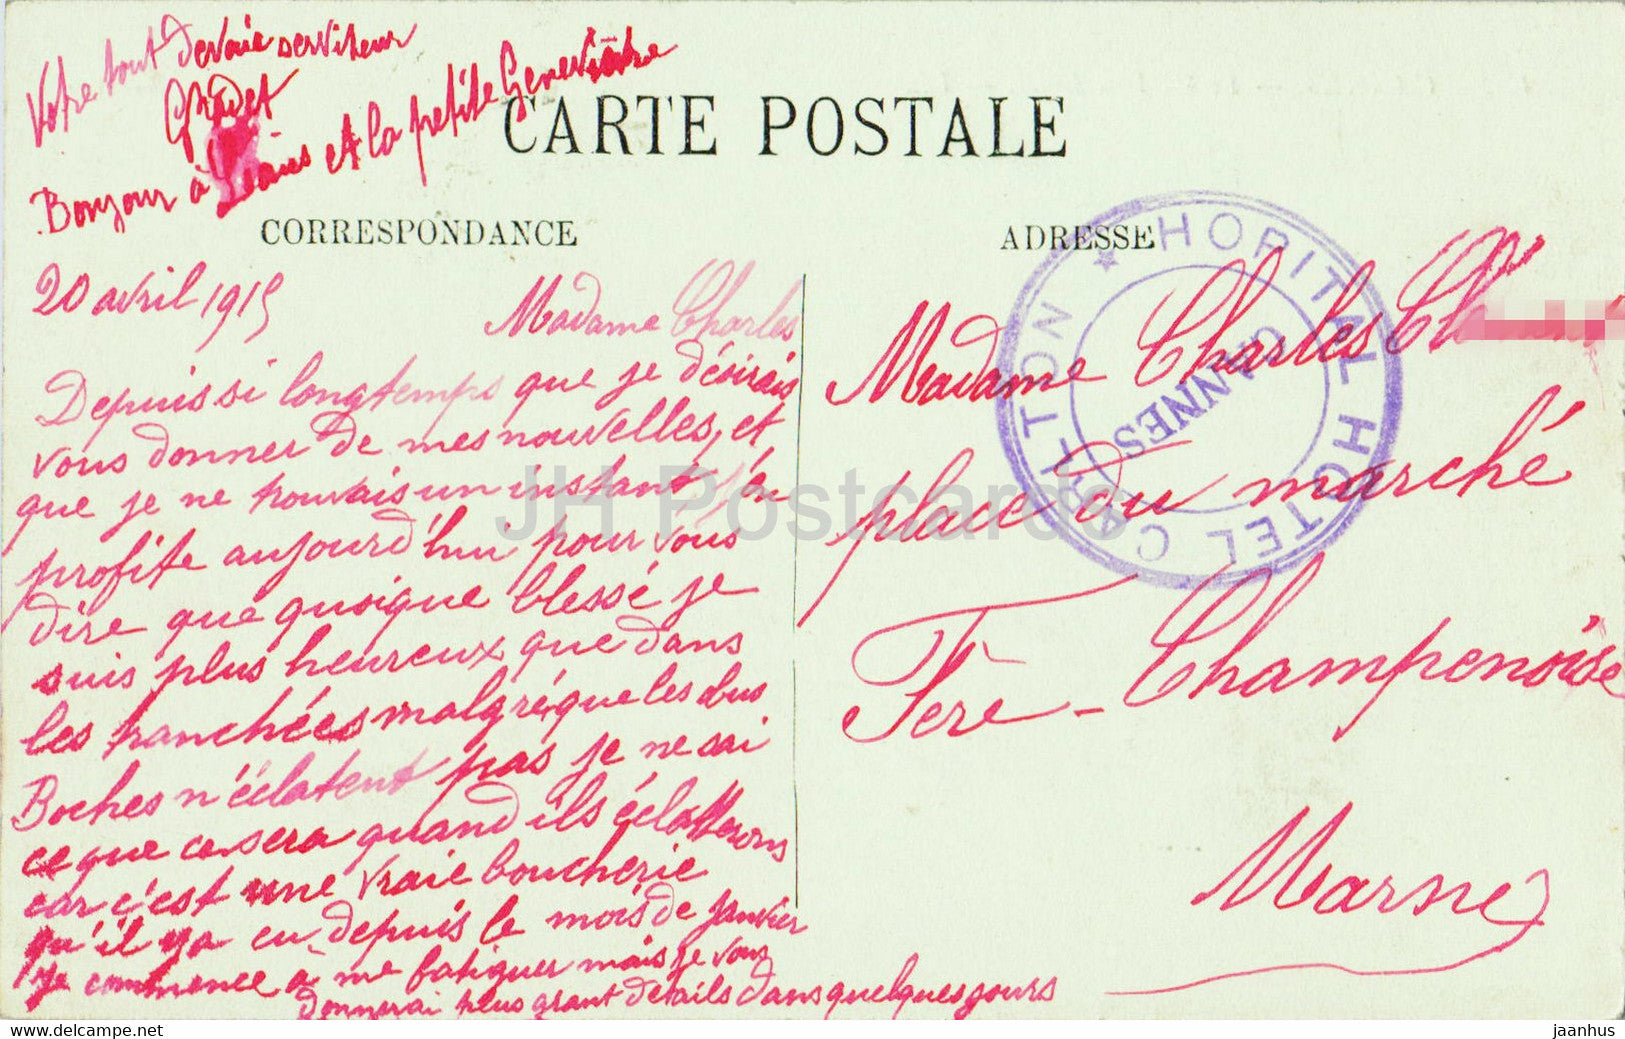 Votre tout devoué serviteur
Bonjour à et A la petite Geneviève
CARTE POSTALE
CORRESPONDANCE
ADRESSE
HOPITAL HOTEL CARLTON
CANNES
20 avril 1915
Madame Charles
Depuis si longtemps que je désirais
vous donner de mes nouvelles, et
que je ne trouvais un instant j'en
profite aujourd'hui pour vous
dire que quoique blessé je
suis plus heureux que dans
les tranchées malgré que les obus
Boches n'éclatent pas je ne sai
ce que ce sera quand ils éclatterons
car c'est une vraie boucherie
qu'il ya eu depuis le mois de janvier
je commence à me fatiguer mais je vous
donnerai plus grant détails dans quelques jours
Madame Charles
place du marché
Fère-Champenoise
Marne
JH Postcards
www.delcampe.net
jaanhus